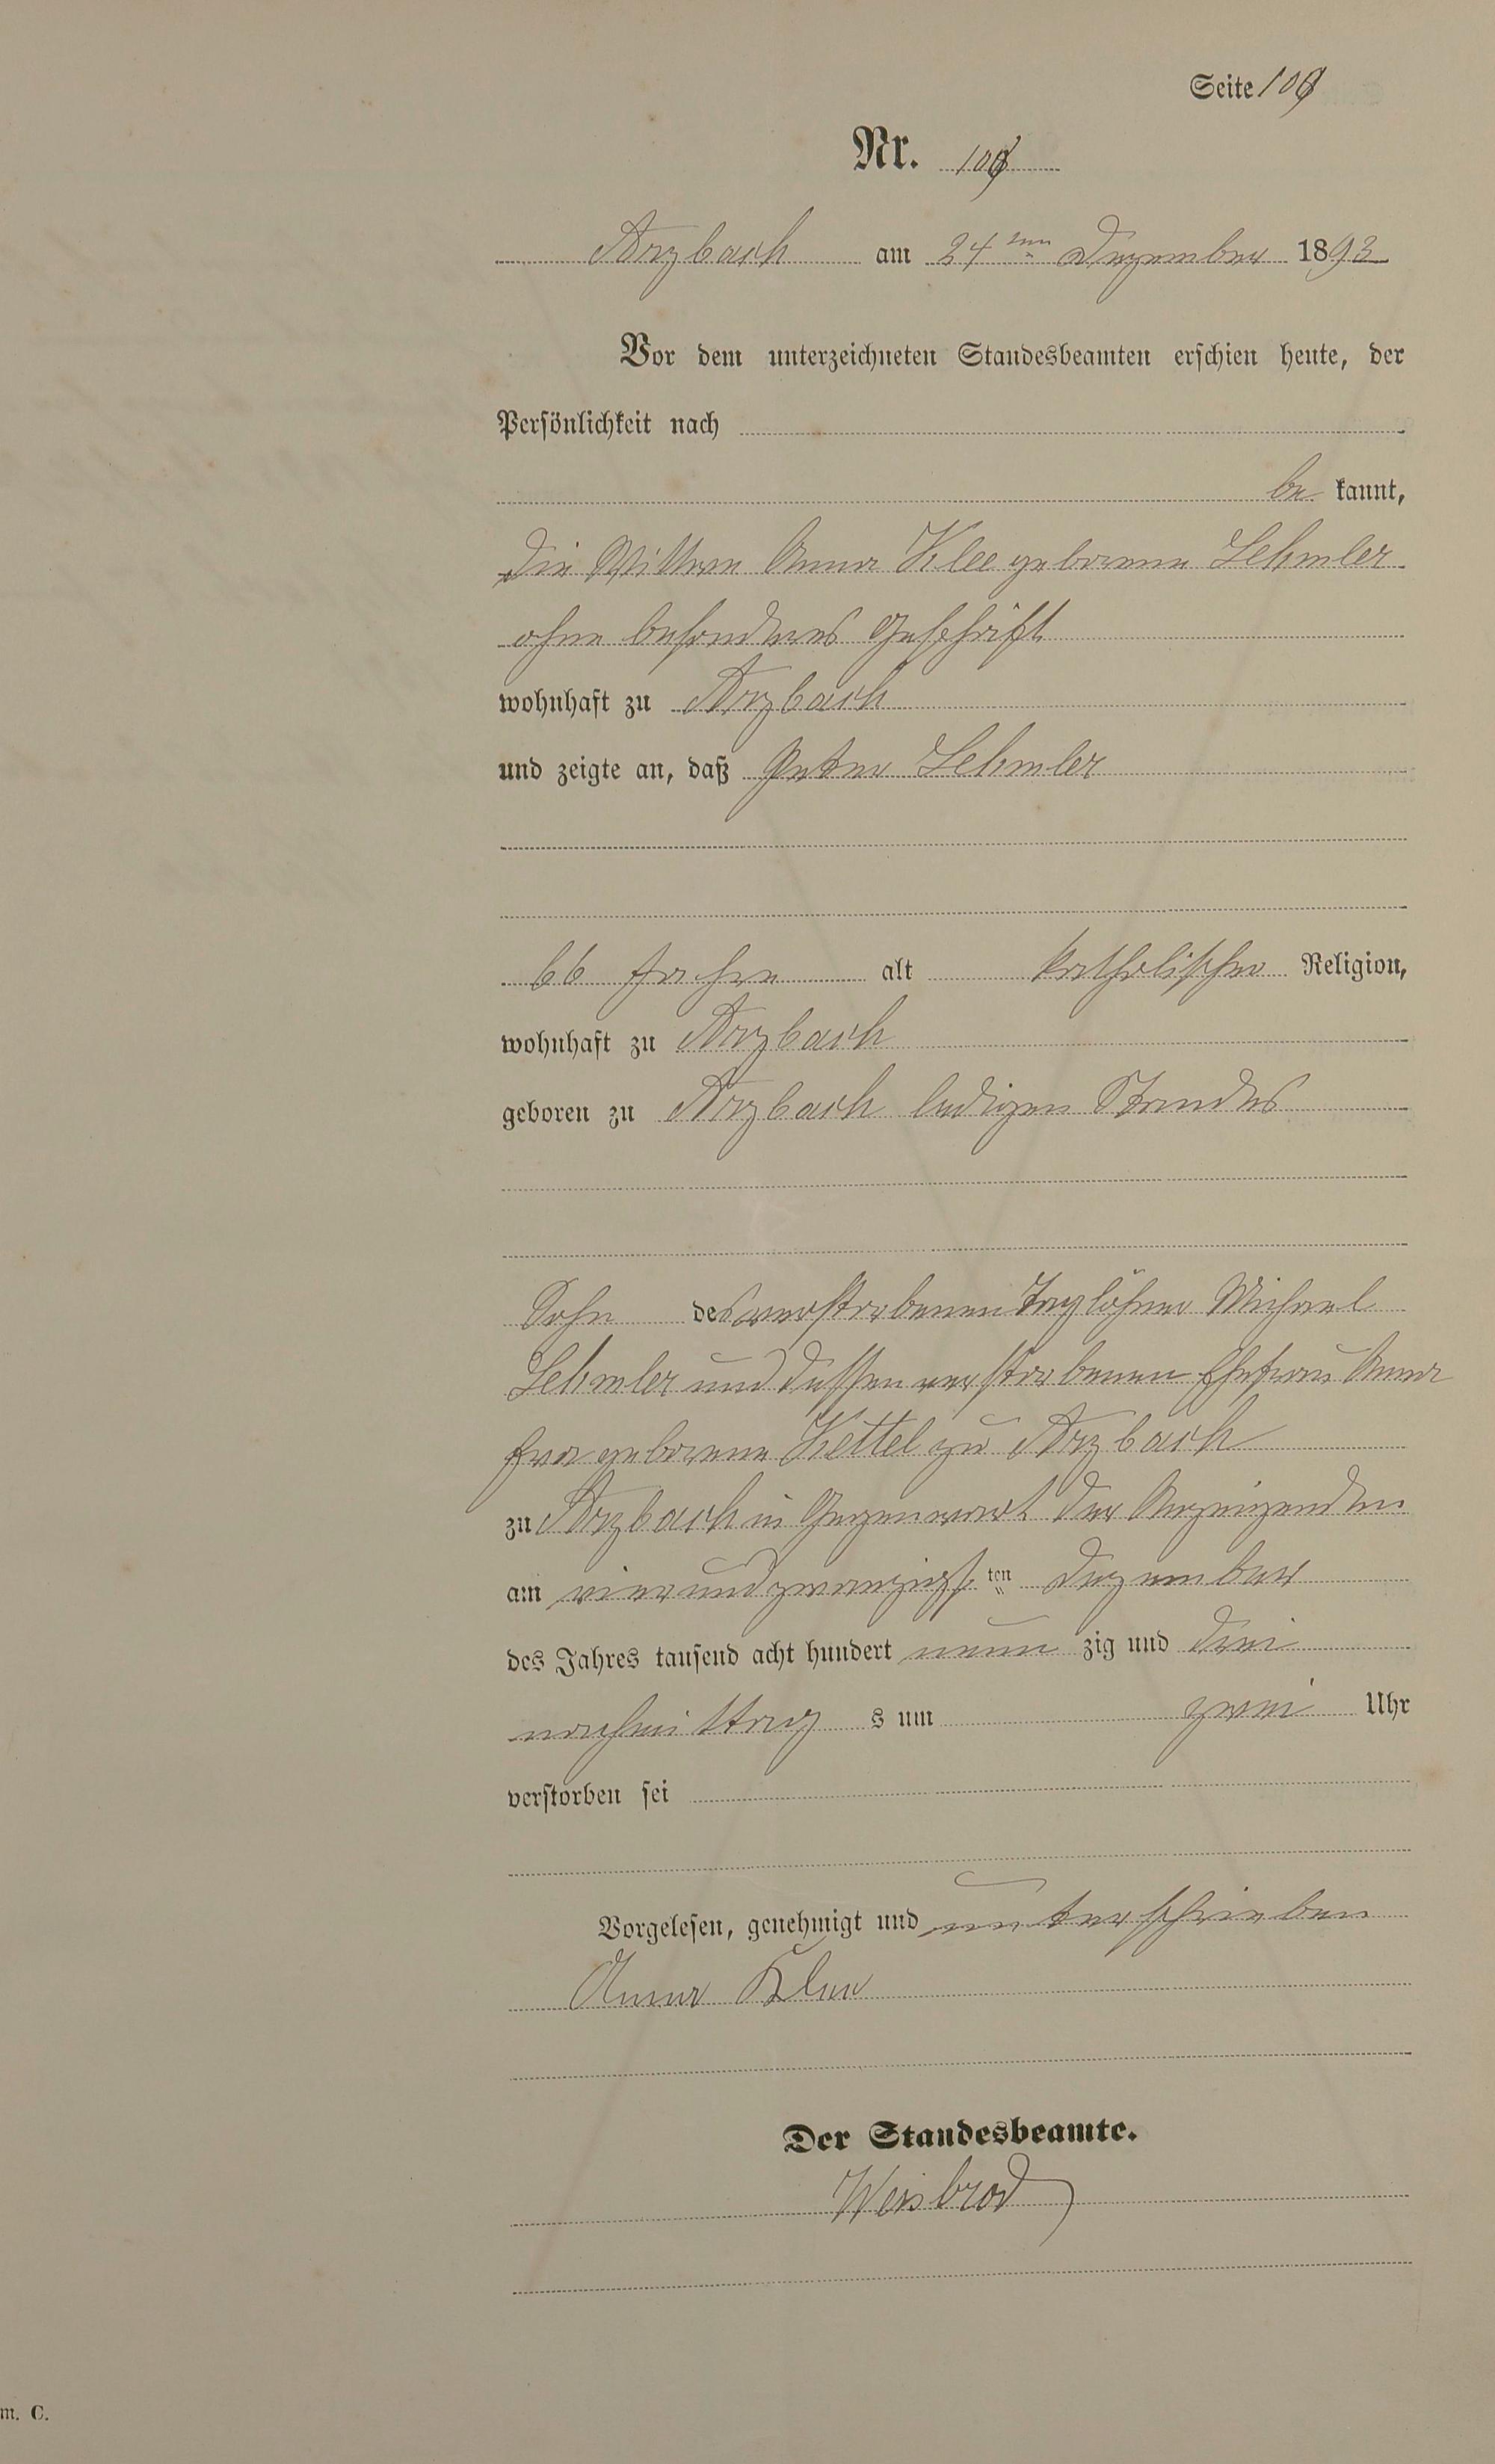 Seite
Nr.
Arzbach am 24ten Dezember 1893
Vor dem unterzeichneten Standesbeamten erschien heute, der
Persönlichkeit nach
be kannt,
die Wittwe Anna Klee geborene Lehmler
ohne besonderes Geschäft
wohnhaft zu Arzbach
und zeigte an, daß Peter Lehmler
66 Jahre alt katholischer Religion,
wohnhaft zu Arzbach
geboren zu Arzbach ledigen Standes
Sohn des verstorbenen Taglöhner Michael
Lehmler und dessen verstorbenen Ehefrau Anna
Eva geborene Kettel zu Arzbach
zu Arzbach in Gegenwart der Anzeigenden
am vierundzwanzigsten Dezember
des Jahres tausend acht hundert neun zig und drei
nachmittag s um zwei Uhr
verstorben sei
Vorgelesen, genehmigt und unterschrieben
Anna Klee
Der Standesbeamte.
Weisbrod
m. C.